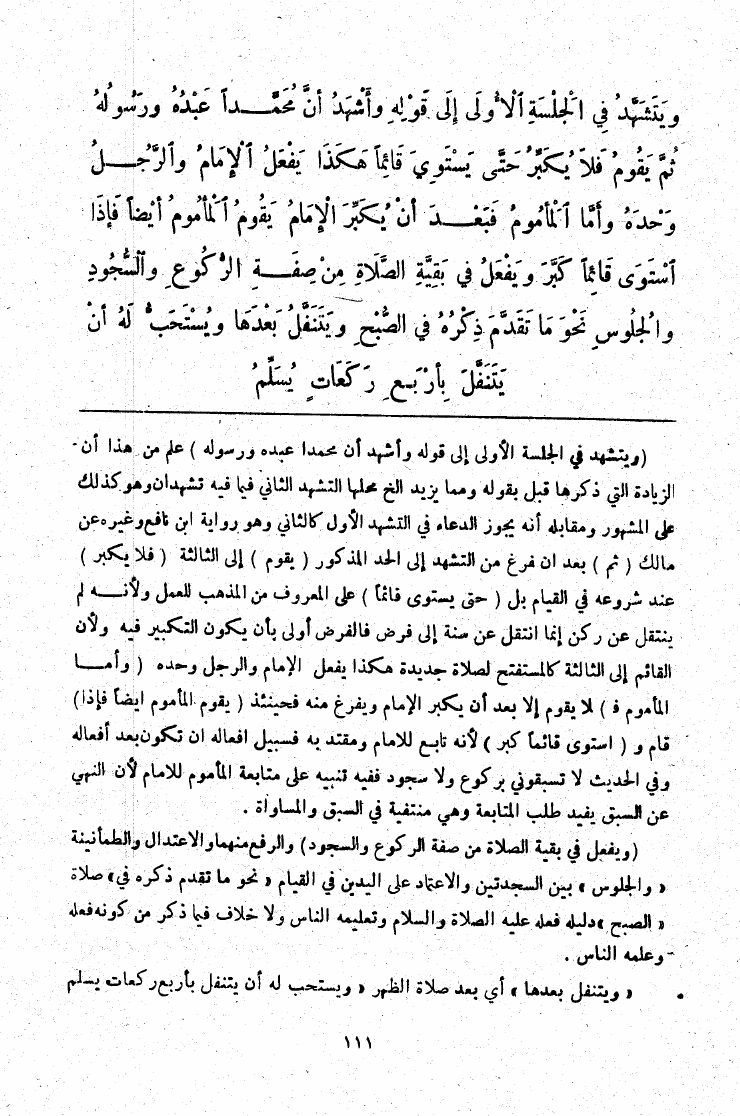 وَيَتَشَهَّدُ فِي الْجَلْسَةِ الْأُولَى إِلَى قَوْلِهِ وَأَشْهَدُ أَنَّ مُحَمَّداً عَبْدُهُ وَرَسُولُهُ
ثُمَّ يَقُومُ فَلَا يُكَبِّرُ حَتَّى يَسْتَوِيَ قَائِمًا هَكَذَا يَفْعَلُ الْإِمَامُ وَالرَّجُلُ
وَحْدَهُ وَأَمَّا الْمَأْمُومُ فَبَعْدَ أَنْ يُكَبِّرَ الْإِمَامُ يَقُومُ الْمَأْمُومُ أَيْضًا فَإِذَا
اسْتَوَى قَائِمًا كَبَّرَ وَيَفْعَلُ فِي بَقِيَّةِ الصَّلَاةِ مِنْ صِفَةِ الرُّكُوعِ وَالسُّجُودِ
وَالْجُلُوسِ نَحْوَ مَا تَقَدَّمَ ذِكْرُهُ فِي الصُّبْحِ وَيَتَنَفَّلُ بَعْدَهَا وَيُسْتَحَبُّ لَهُ أَنْ
يَتَنَفَّلَ بِأَرْبَعِ رَكَعَاتٍ يُسَلِّمُ
(ويتشهد في الجلسة الأولى إلى قوله وأشهد أن محمدا عبده ورسوله) علم من هذا أن
الزيادة التي ذكرها قبل بقوله ومما يزيد الخ محلها التشهد الثاني فيما فيه تشهدان وهو كذلك
على المشهور ومقابله أنه يجوز الدعاء في التشهد الأول كالثاني وهو رواية ابن نافع وغيره عن
مالك (ثم) بعد ان فرغ من التشهد إلى الحد المذكور (يقوم) إلى الثالثة (فلا يكبر)
عند شروعه في القيام بل (حتى يستوى قائماً) على المعروف من المذهب للعمل ولأنه لم
ينتقل عن ركن إنما انتقل عن سنة إلى فرض فالفرض أولى بأن يكون التكبير فيه ولأن
القائم إلى الثالثة كالمستفتح لصلاة جديدة هكذا يفعل الإمام والرجل وحده (وأما
المأموم ف) لا يقوم إلا بعد أن يكبر الإمام ويفرغ منه فحينئذ (يقوم المأموم ايضاً فإذا)
قام و (استوى قائماً كبر) لأنه تابع للامام ومقتد به فسبيل افعاله ان تكون بعد أفعاله
وفي الحديث لا تسبقوني بركوع ولا سجود ففيه تنبيه على متابعة المأموم للامام لأن النهي
عن السبق يفيد طلب المتابعة وهي منتفية في السبق والمساواة .
(ويفعل في بقية الصلاة من صفة الركوع والسجود) والرفع منهما والاعتدال والطمأنينة
« والجلوس » بين السجدتين والاعتماد على اليدين في القيام « نحو ما تقدم ذكره في» صلاة
« الصبح » دليله فعله عليه الصلاة والسلام وتعليمه الناس ولا خلاف فيما ذكر من كونه فعله
وعلمه الناس .
« ويتنفل بعدها » أي بعد صلاة الظهر « ويستحب له أن يتنفل بأربع ركعات يسلم
١١١